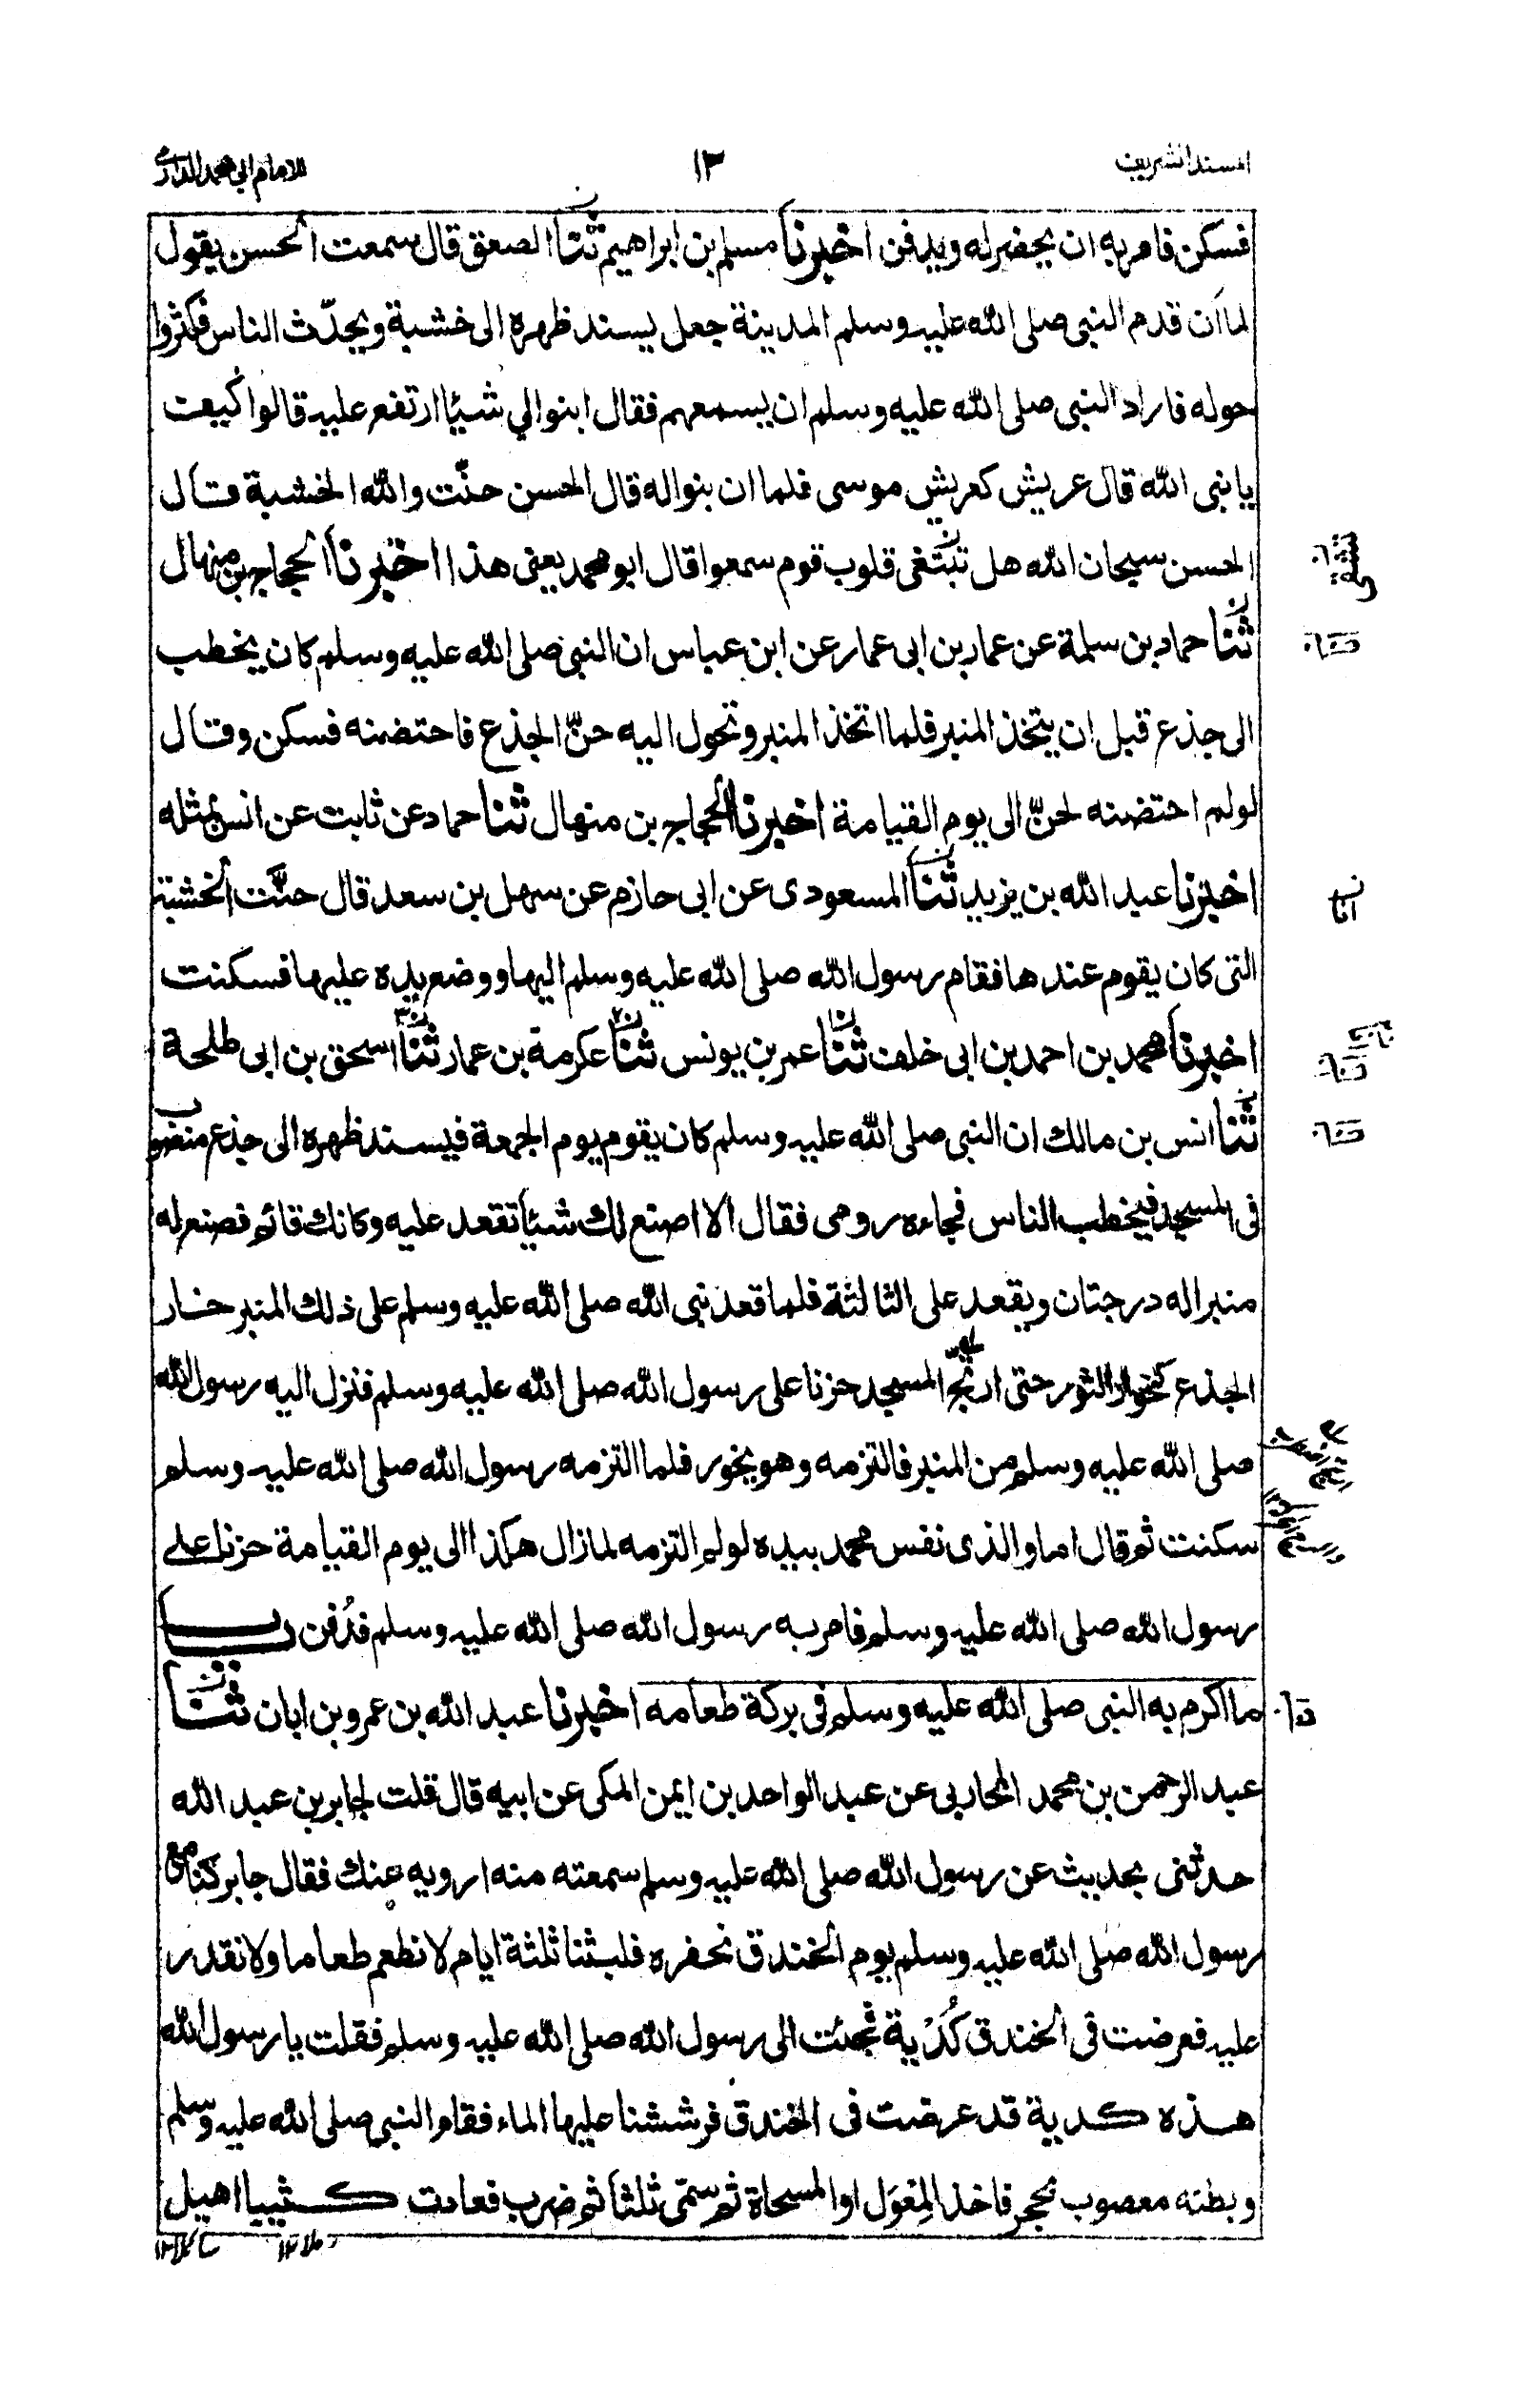 المسند الشريف
١٣
للامام ابي محمد الدارمي
فسكن فامر به ان يحفر له ويدفن اخبرنا مسلم بن ابراهيم ثنا الصعق قال سمعت الحسن يقول
لما ان قدم النبى صلى الله عليه وسلم المدينة جعل يسند ظهره الى خشبة ويحدّث الناس فكثروا
حوله فاراد النبى صلى الله عليه وسلم ان يسمعهم فقال ابنوا لي شيئا ارتفع عليه قالوا كيف
يا نبى الله قال عريش كعريش موسى فلما ان بنوا له قال الحسن حنّت والله الخشبة قال
الحسن سبحان الله هل تبتغى قلوب قوم سمعوا قال ابو محمد يعنى هذا اخبرنا الحجاج بن منهال
ثنا حماد بن سلمة عن عمار بن ابى عمار عن ابن عباس ان النبى صلى الله عليه وسلم كان يخطب
الى جذع قبل ان يتخذ المنبر فلما اتخذ المنبر وتحول اليه حنّ الجذع فاحتضنه فسكن وقال
لو لم احتضنه لحنّ الى يوم القيامة اخبرنا الحجاج بن منهال ثنا حماد عن ثابت عن انس بمثله
اخبرنا عبد الله بن يزيد ثنا المسعودى عن ابى حازم عن سهل بن سعد قال حنّت الخشبة
انا
التى كان يقوم عندها فقام رسول الله صلى الله عليه وسلم اليها ووضع يده عليها فسكنت
اخبرنا محمد بن احمد بن ابى خلف ثنا عمر بن يونس ثنا عكرمة بن عمار ثنا اسحق بن ابى طلحة
ثنا انس بن مالك ان النبى صلى الله عليه وسلم كان يقوم يوم الجمعة فيسند ظهره الى جذع منصوب
فى المسجد فيخطب الناس فجاءه رومى فقال الا اصنع لك شيئا تقعد عليه وكانك قائم فصنع له
منبرا له درجتان ويقعد على الثالثة فلما قعد نبى الله صلى الله عليه وسلم على ذلك المنبر خار
الجذع كخوار الثور حتى ارتج المسجد حزنا على رسول الله صلى الله عليه وسلم فنزل اليه رسول الله
صلى الله عليه وسلم من المنبر فالتزمه وهو يخور فلما التزمه رسول الله صلى الله عليه وسلم
سكنت ثم قال اما والذى نفس محمد بيده لو لم التزمه لما زال هكذا الى يوم القيامة حزنا على
رسول الله صلى الله عليه وسلم فامر به رسول الله صلى الله عليه وسلم فدُفن باب
ما اكرم به النبى صلى الله عليه وسلم فى بركة طعامه اخبرنا عبد الله بن عمرو بن ابان ثنا
عبد الرحمن بن محمد المحاربى عن عبد الواحد بن ايمن المكى عن ابيه قال قلت لجابر بن عبد الله
حدثنى بحديث عن رسول الله صلى الله عليه وسلم سمعته منه ارويه عنك فقال جابر كنا مع
رسول الله صلى الله عليه وسلم يوم الخندق نحفره فلبثنا ثلثة ايام لا نطعم طعاما ولا نقدر
عليه فعرضت فى الخندق كُدْية فجئت الى رسول الله صلى الله عليه وسلم فقلت يا رسول الله
هذه كدية قد عرضت فى الخندق فرششنا عليها الماء فقام النبى صلى الله عليه وسلم
وبطنه معصوب بحجر فاخذ المِعْوَل او المسحاة ثم سمّى ثلثا ثم ضرب فعادت كثيبا اهيل